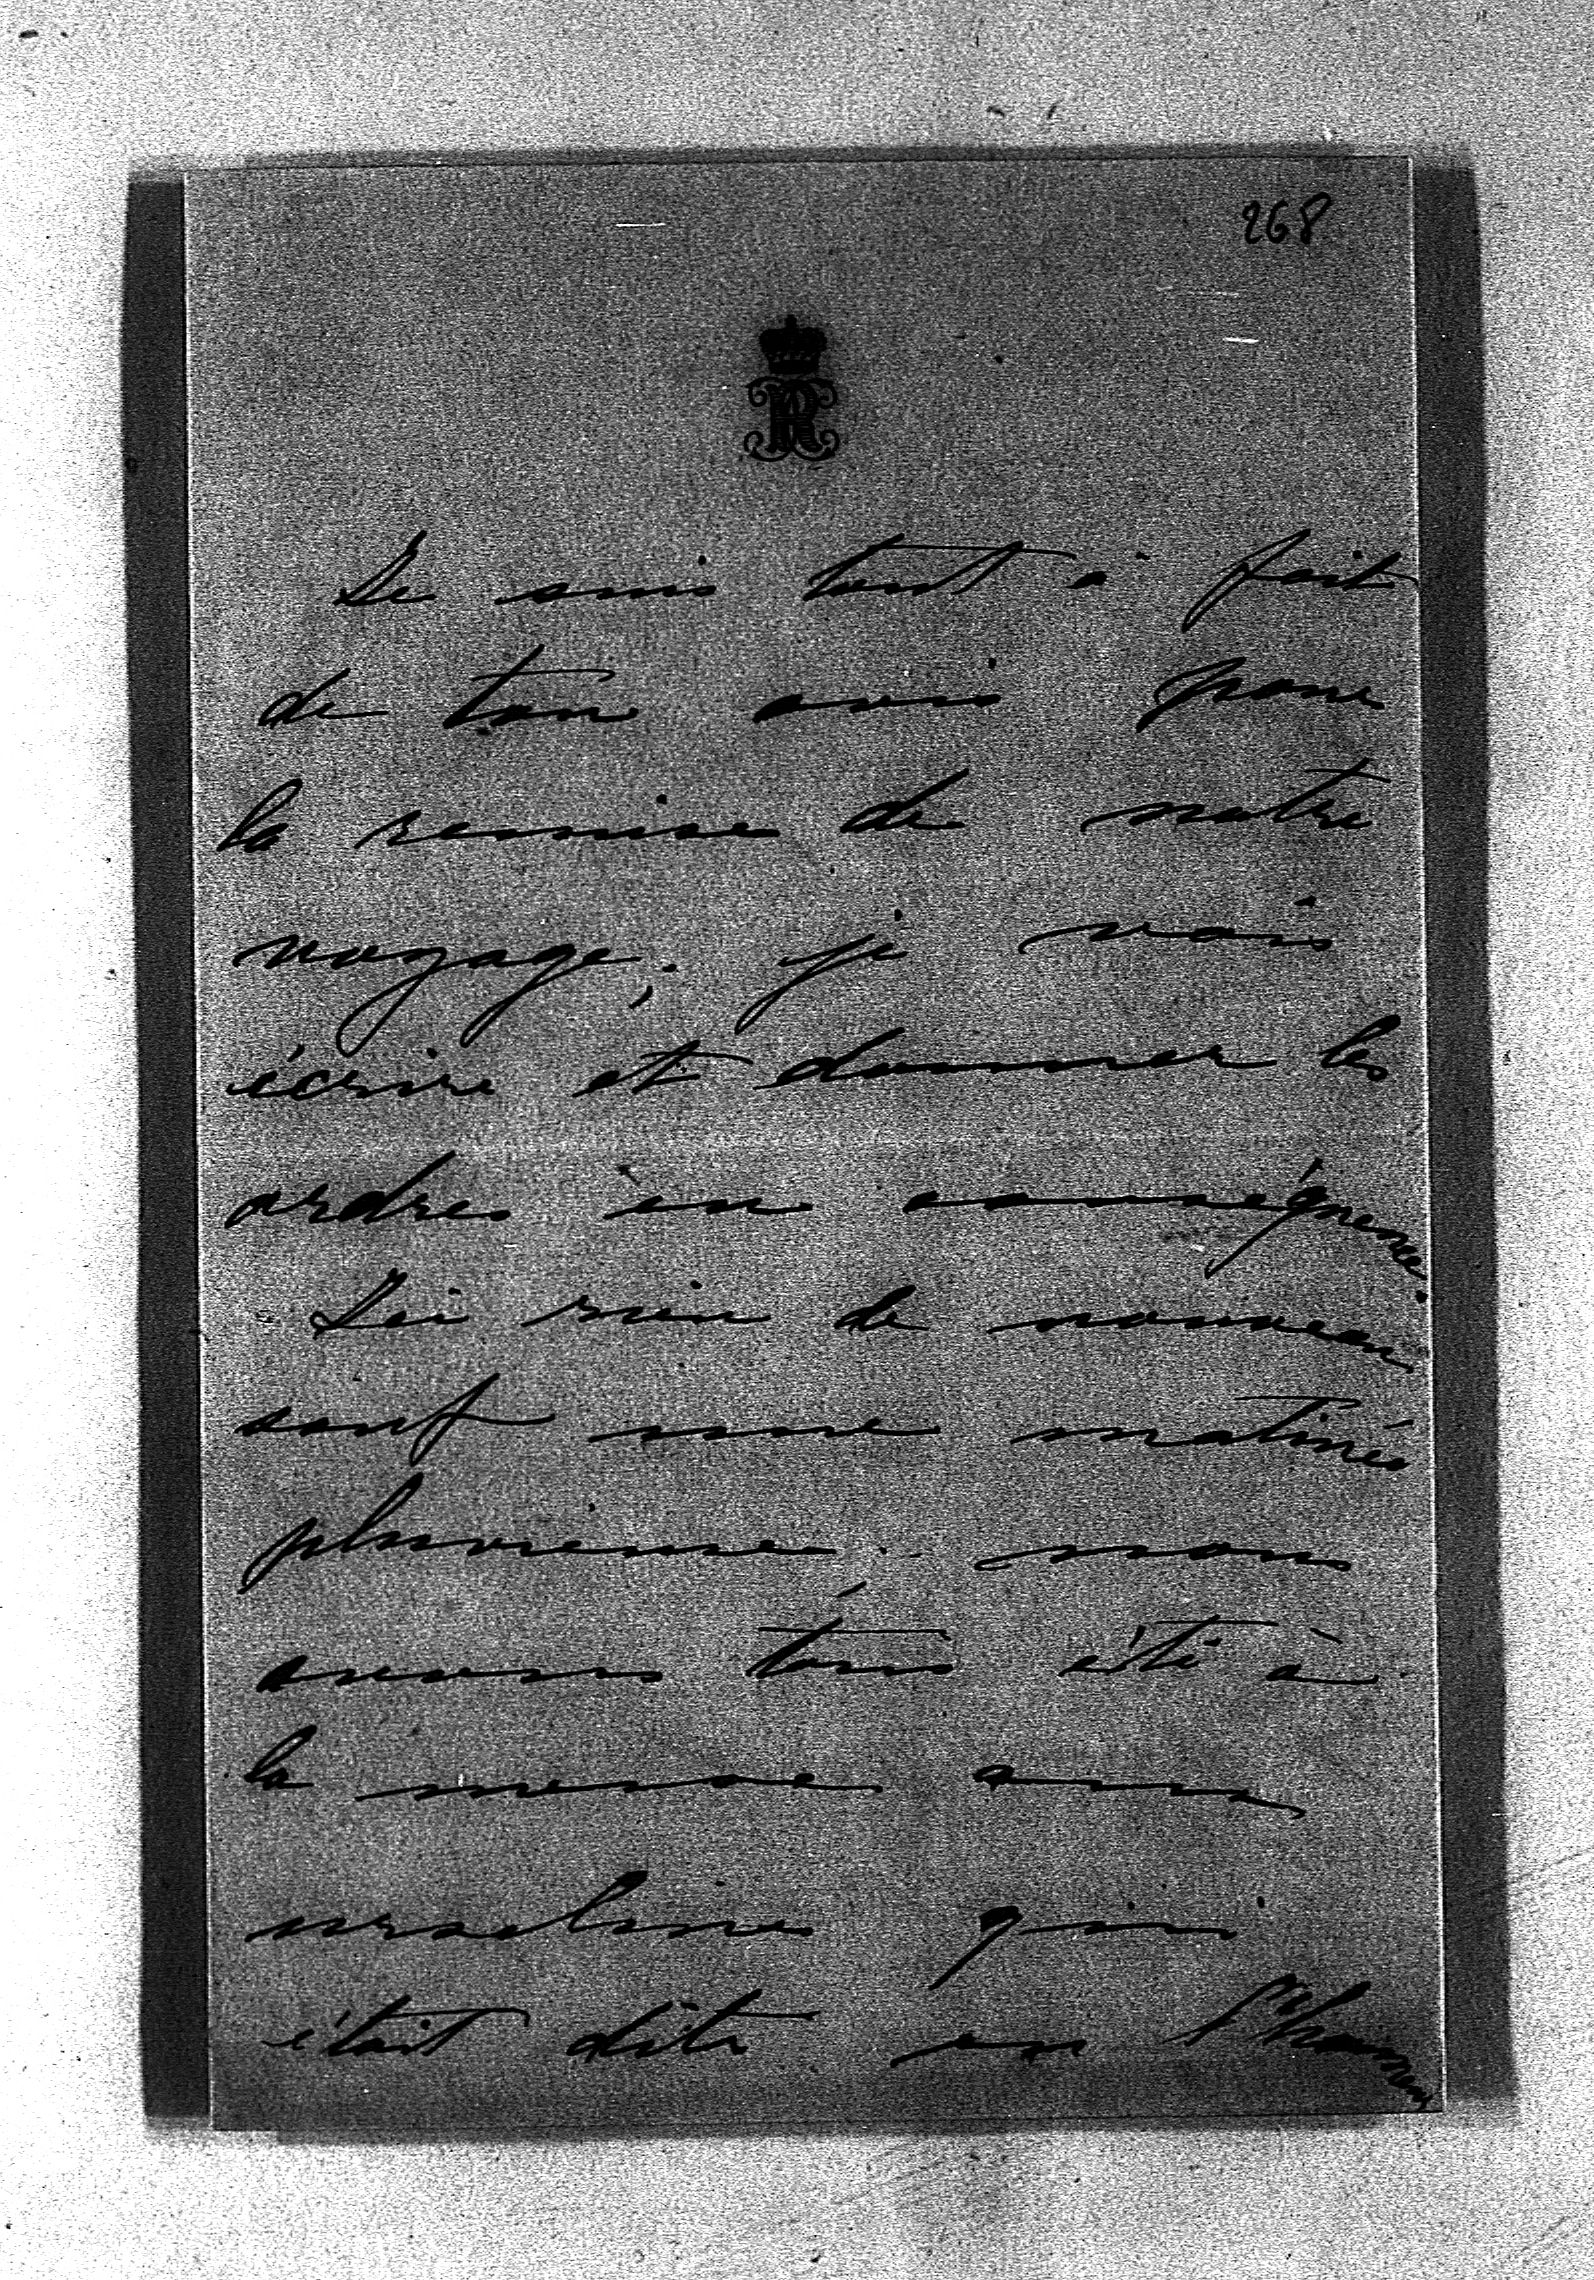 268
Je suis tout à fait
de ton avis pour
la remise de notre
voyage; je vais
écrire et donner les
ordres en conséquence.
Ici rien de nouveau
sauf une matinée
pluvieuse. nous
avons tous été à
la messe aux
ursulines qui
était dite en l'honneur